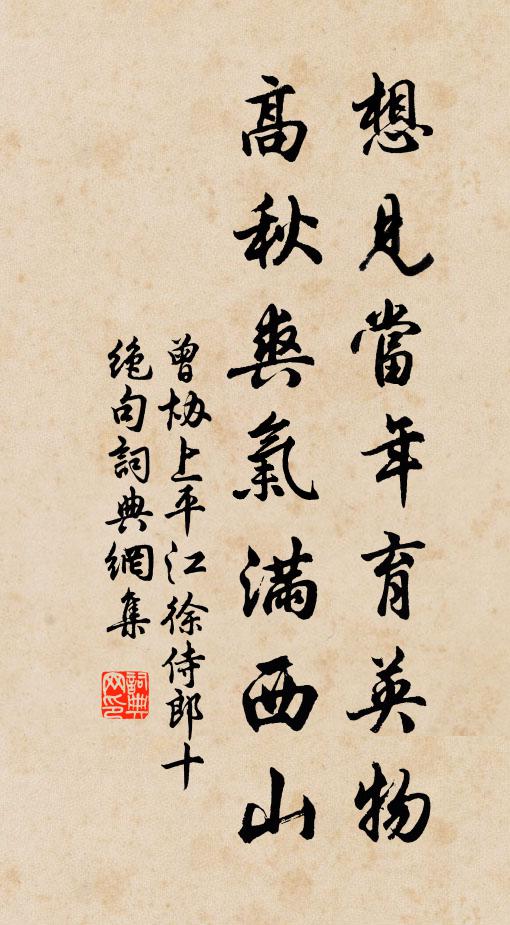 想見當年育英物
高秋爽氣滿西山
曾协上平江徐侍郎十
絶句詞典網集
詞典網印